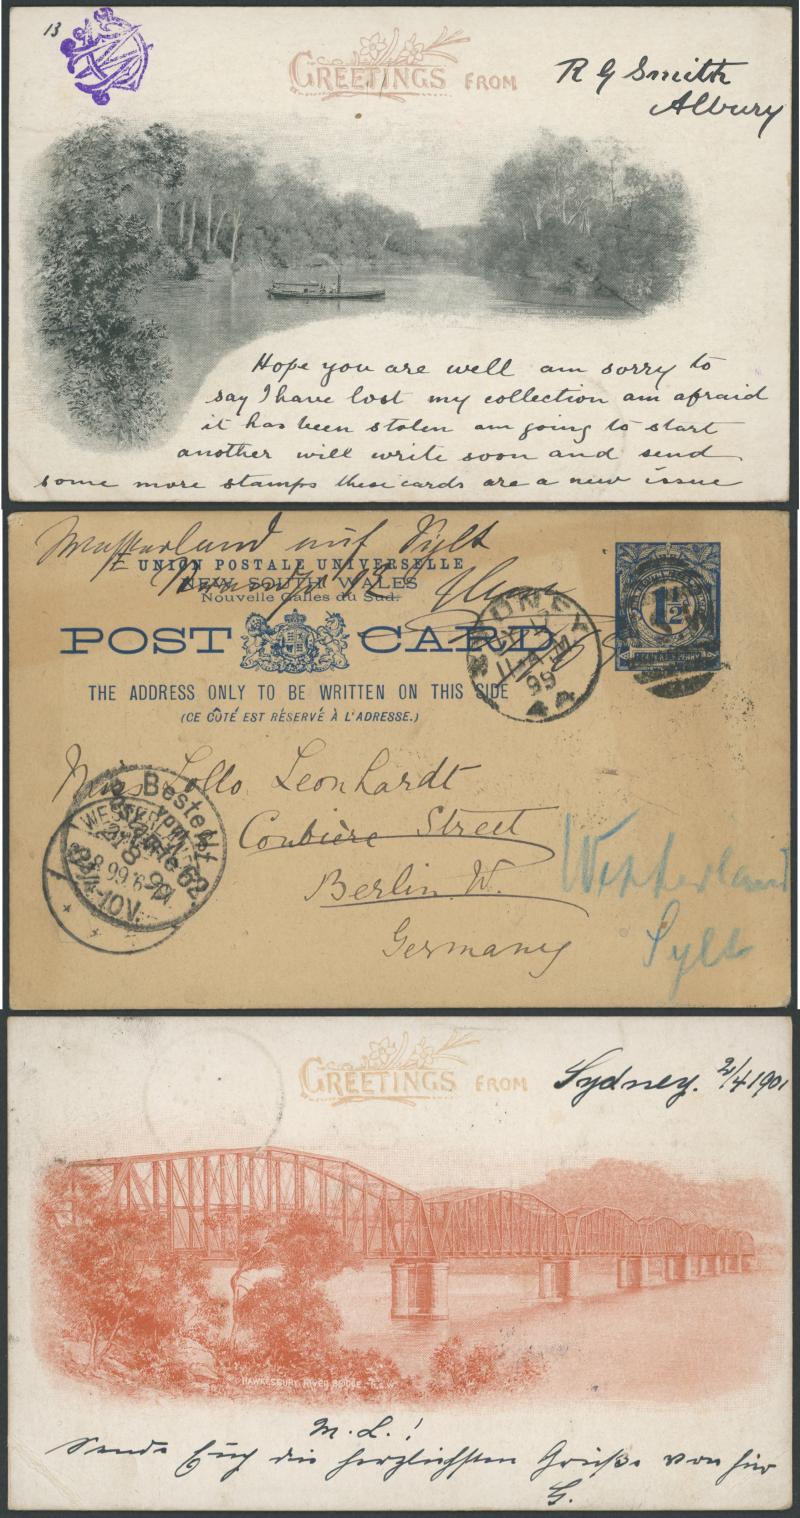 13
GREETINGS FROM
R G Smith
Albury
Hope you are well am sorry to
say I have lost my collection am afraid
it has been stolen am going to start
another will write soon and send
some more stamps these cards are a new issue
Westerland auf Sylt
UNION POSTALE UNIVERSELLE
NEW SOUTH WALES
Nouvelle Galles du Sud.
POST CARD
THE ADDRESS ONLY TO BE WRITTEN ON THIS SIDE
(CE CÔTÉ EST RÉSERVÉ À L'ADRESSE.)
SYDNEY
99
1½
Miss Lollo Leonhardt
Street
Berlin. W.
Germany
Bestellt
vom
Postamte 62
Westerland
Sylt
GREETINGS FROM
Sydney. 2/4 1901
HAWKESBURY RIVER BRIDGE. N.S.W.
M. L.!
Sende Euch die herzlichsten Grüße von hier
G.